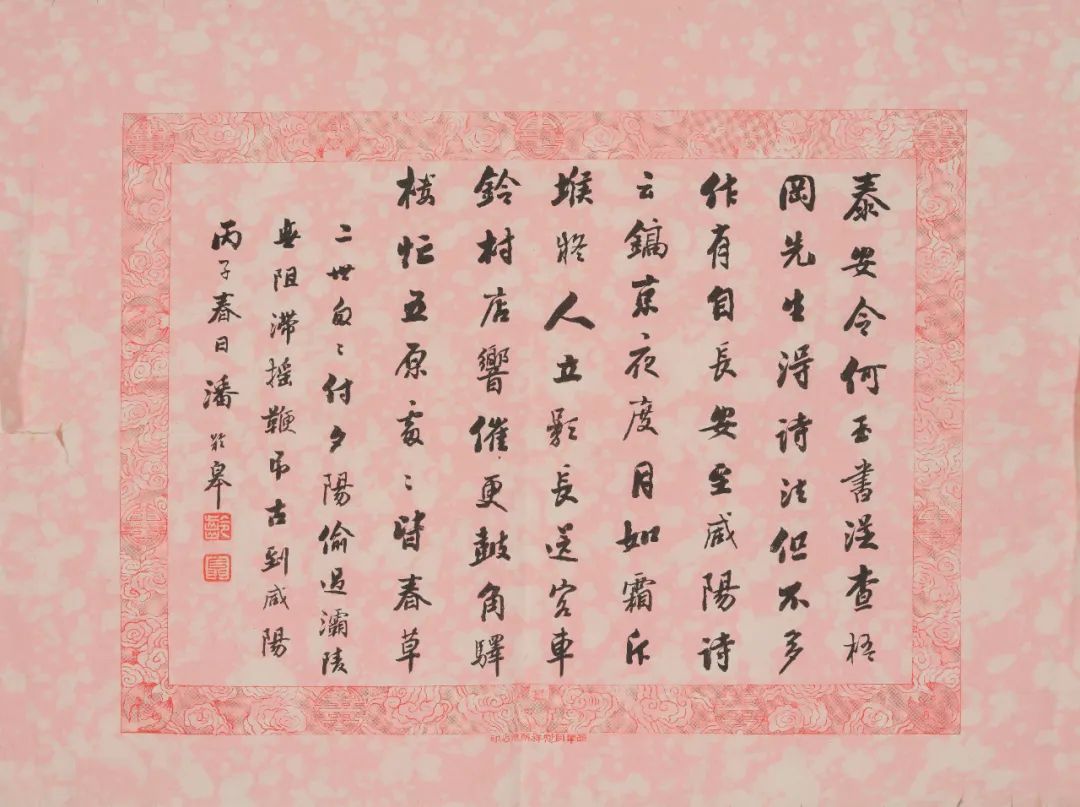 泰安令何玉書從查梧
岡先生得詩法但不多
作有自長安至咸陽詩
云鎬京夜度月如霜斥
堠將人立影長送客車
鈴村店響催更鼓角驛
樓忙五原處處皆春草
二世匆匆付夕陽偷過灞陵
無阻滯搖鞭弔古到咸陽
丙子春日潘齡皋